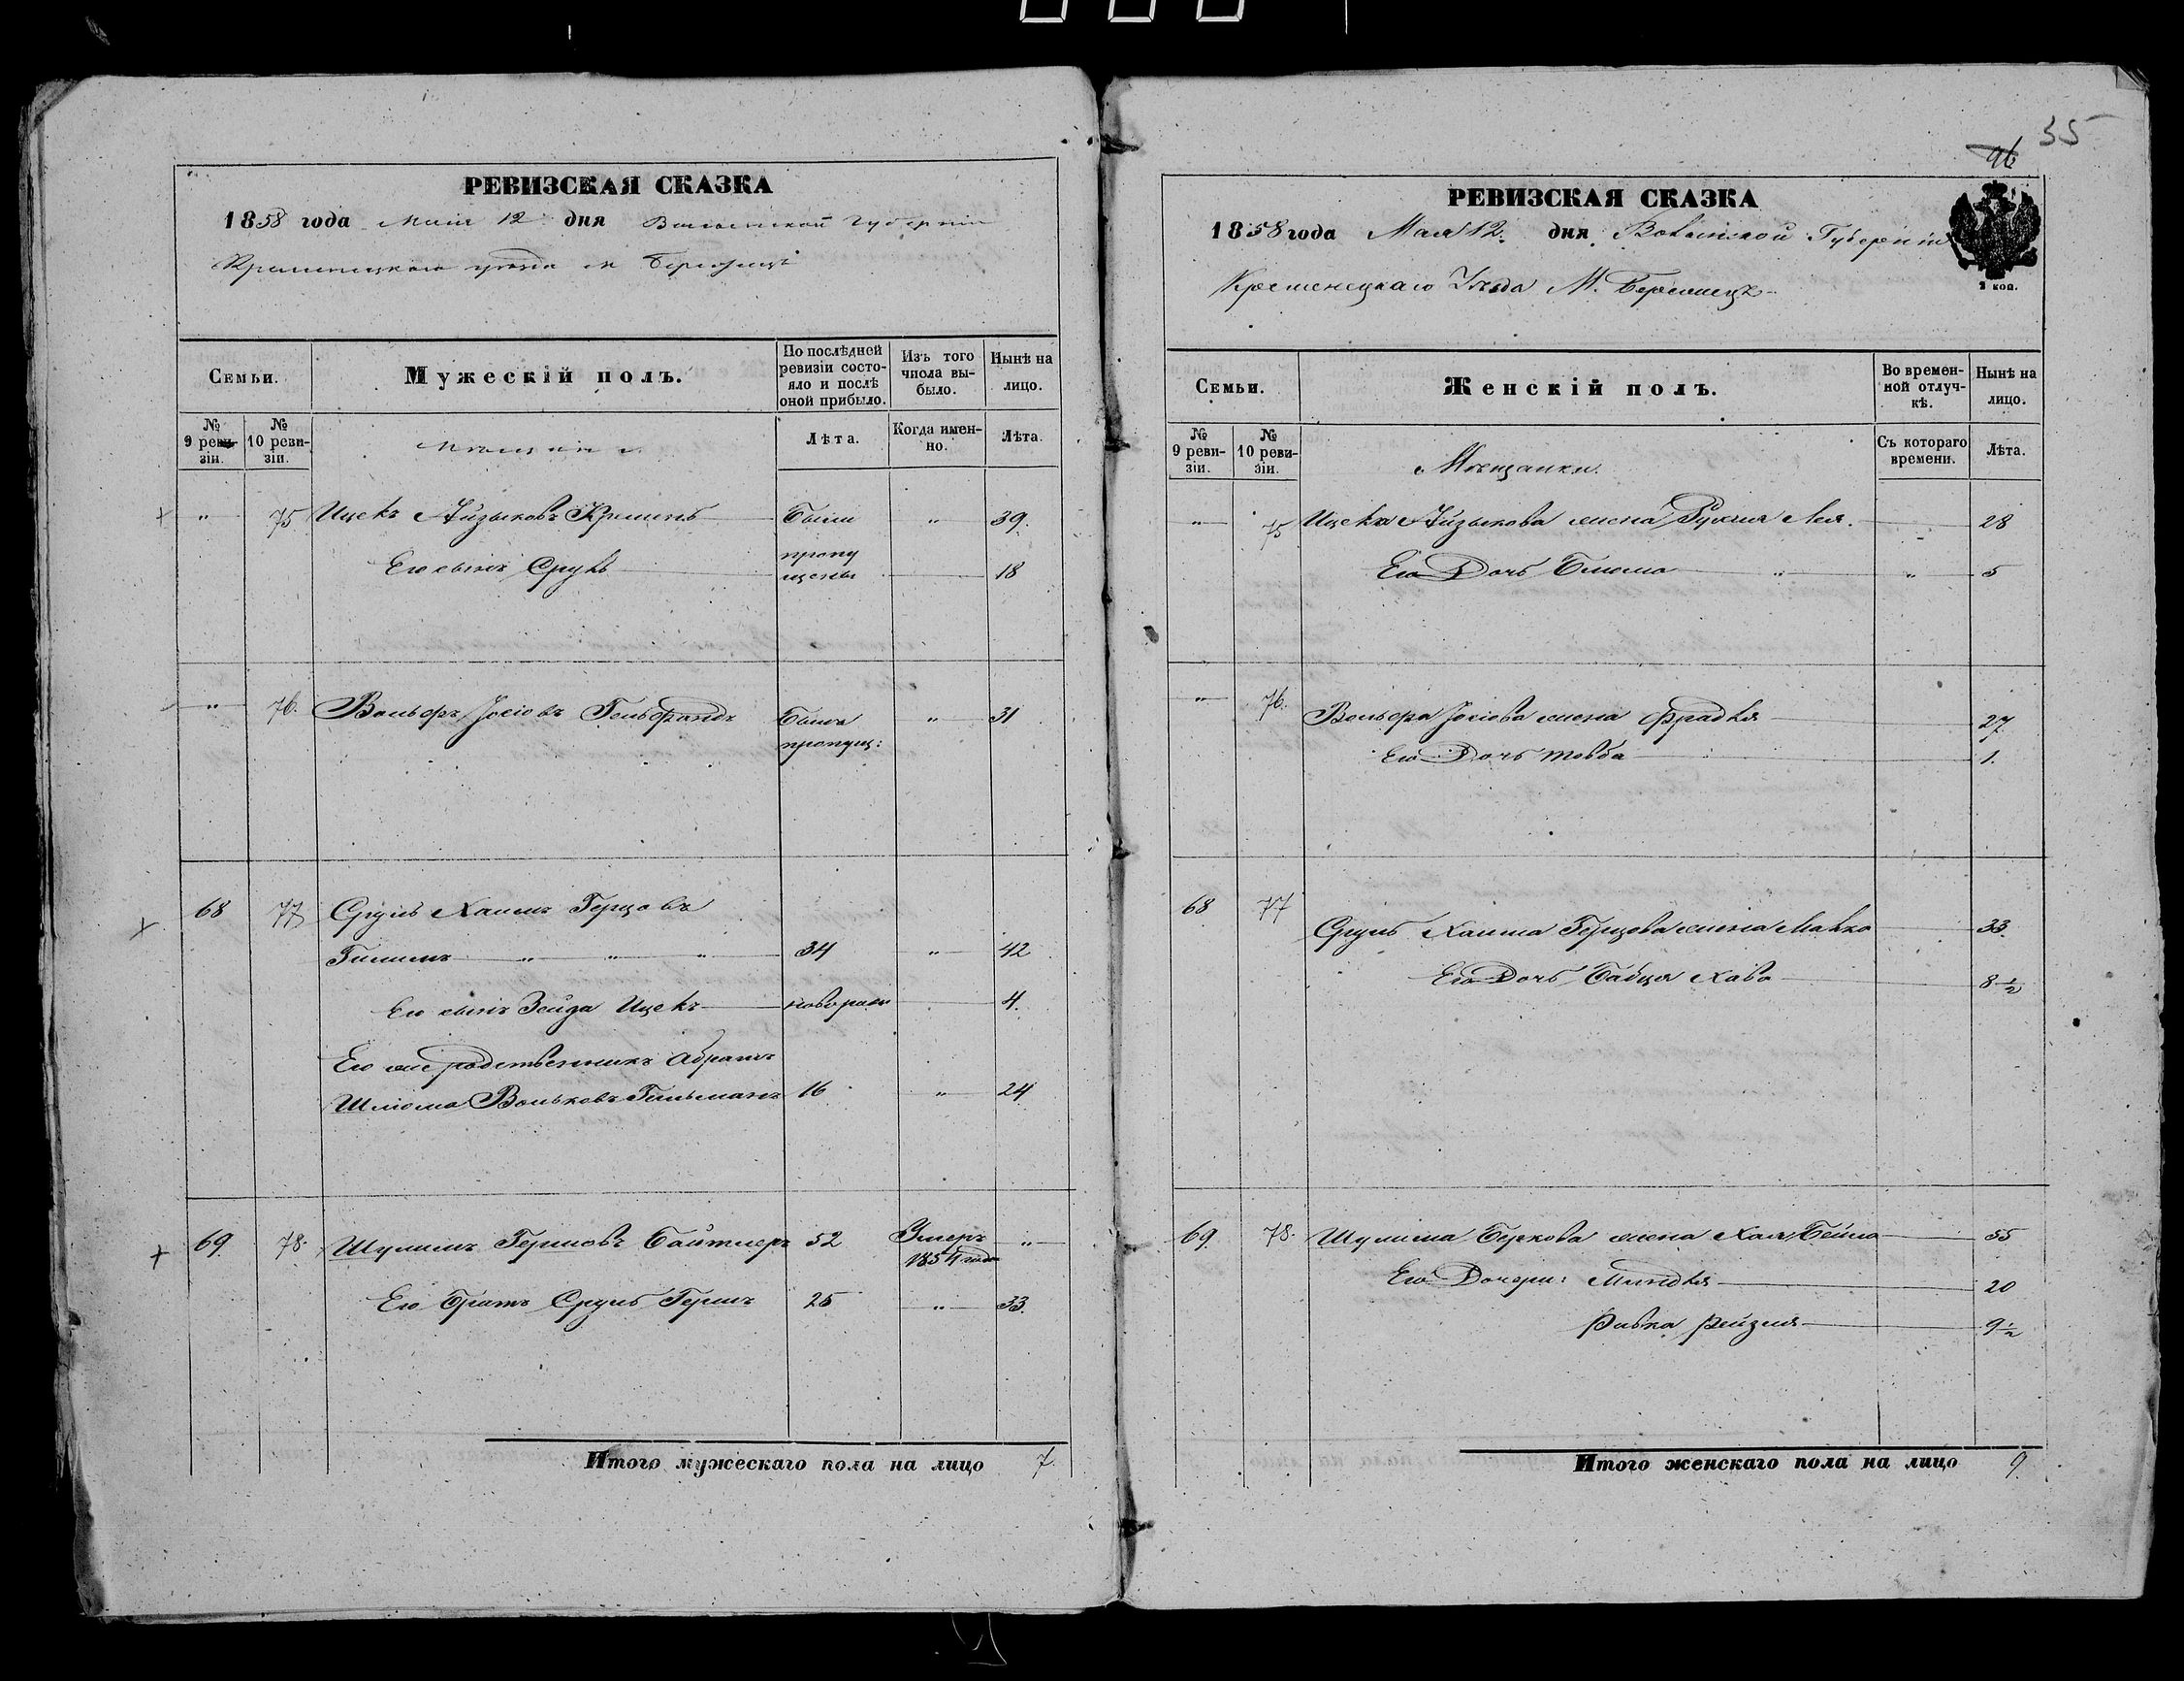 35
96
РЕВИЗСКАЯ СКАЗКА
1858 года Мая 12 дня Волынской Губерніи
Кременецкаго уезда м Берестечк
Семьи.
Мужескій полъ.
По послѣдней ревизіи состояло и послѣ оной прибыло.
Изъ того числа выбыло.
Нынѣ на лицо.
№ 9 ревизіи.
№ 10 ревизіи.
Мѣщани
Лѣта.
Когда именно.
Лѣта.
" 75 Ицекъ Айзыковъ Кремень Были " 39.
Его сынъ Сруль пропущены 18
" 76. Вольфъ Іосіовъ Гельфандъ Былъ " 31
пропущ:
68 77 Сруль Хаимъ Герцовъ
Гитимъ " " " 34 " 42
Его сынъ Зейда Ицекъ новорож 4.
Его же родственникъ Абрамъ
Шлиома Вольковъ Гильманъ 16 " 24
69. 78. Шулимъ Гершовъ Байтлеръ 52 Умеръ "
1854 года
Его братъ Сруль Гершъ 25 " 33.
Итого мужескаго пола на лицо 7.
РЕВИЗСКАЯ СКАЗКА
1858 года Мая 12. дня Волынской Губерніи
Кременецкаго Уезда М.
1 коп.
Семьи.
Женскій полъ.
Во временной отлучкѣ.
Нынѣ на лицо.
№ 9 ревизіи.
№ 10 ревизіи.
Мѣщанки.
Съ котораго времени.
Лѣта.
" 75 Ицека Айзыкова жена Рухля Лея. 28
Его Дочь Блюма " " 5
" 76. Вольфа Іосіова жена Фрадля 27
Его Дочь Товба 1.
68 77
Сруль Хаима Герцова жена Малка 33.
Его Дочь Бабця Хава 8½
69. 78. Шулима Беркова жена Хая Бейла 55
Его Дочери: Миндля 20
Ривка Рейзля 9½
Итого женскаго пола на лицо 9